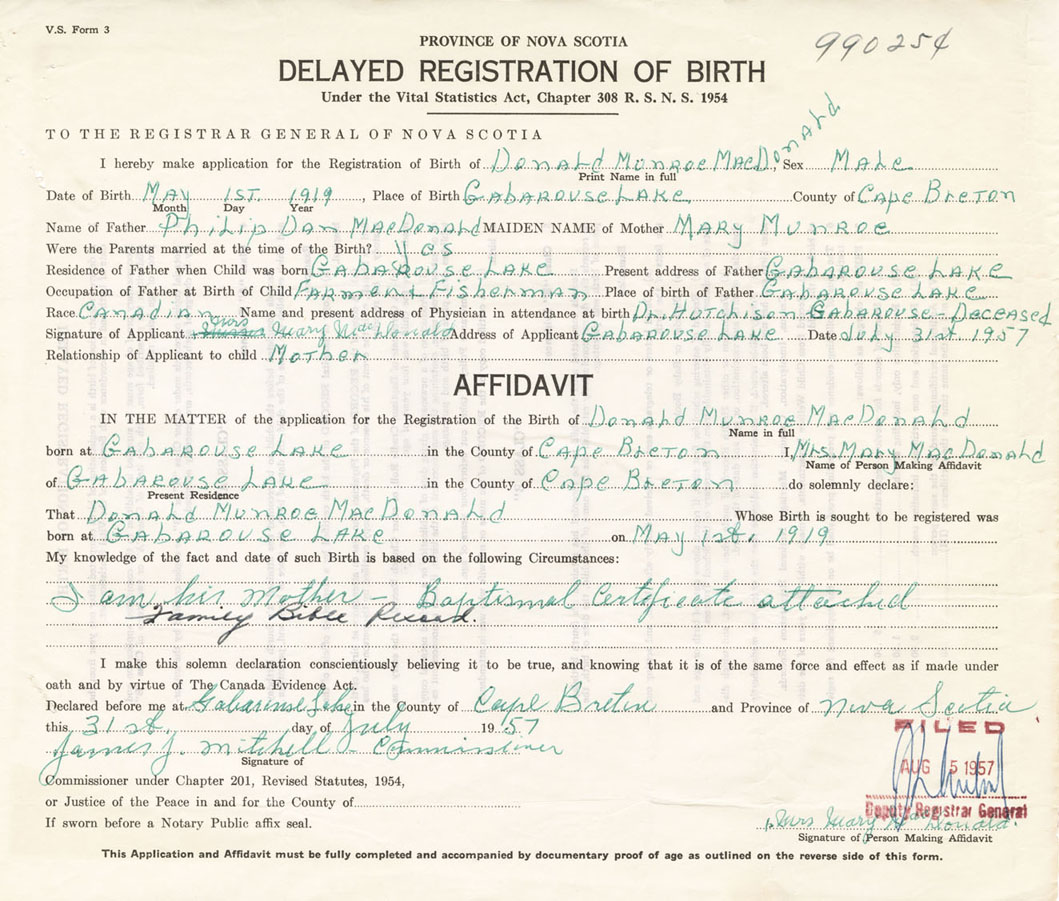 V.S. Form 3
990254
PROVINCE OF NOVA SCOTIA
DELAYED REGISTRATION OF BIRTH
Under the Vital Statistics Act, Chapter 308 R. S. N. S. 1954
TO THE REGISTRAR GENERAL OF NOVA SCOTIA
I hereby make application for the Registration of Birth of Donald Munroe MacDonald, Sex Male
Print Name in full
Date of Birth May 1st. 1919, Place of Birth Gabarouse Lake County of Cape Breton
Month Day Year
Name of Father Philip Dan MacDonald MAIDEN NAME of Mother Mary Munroe
Were the Parents married at the time of the Birth? Yes
Residence of Father when Child was born Gabarouse Lake Present address of Father Gabarouse Lake
Occupation of Father at Birth of Child Farmer + Fisherman Place of birth of Father Gabarouse Lake
Race Canadian Name and present address of Physician in attendance at birth Dr. Hutchison Gabarouse - Deceased
Signature of Applicant Mrs Mary MacDonald Address of Applicant Gabarouse Lake Date July 31st 1957
Relationship of Applicant to child Mother
AFFIDAVIT
IN THE MATTER of the application for the Registration of the Birth of Donald Munroe MacDonald
Name in full
born at Gabarouse Lake in the County of Cape Breton I, Mrs. Mary MacDonald
Name of Person Making Affidavit
of Gabarouse Lake in the County of Cape Breton do solemnly declare:
Present Residence
That Donald Munroe MacDonald Whose Birth is sought to be registered was
born at Gabarouse Lake on May 1st. 1919
My knowledge of the fact and date of such Birth is based on the following Circumstances:
I am his Mother - Baptismal Certificate attached
Family Bible Record.
I make this solemn declaration conscientiously believing it to be true, and knowing that it is of the same force and effect as if made under
oath and by virtue of The Canada Evidence Act.
Declared before me at Gabarouse Lake in the County of Cape Breton and Province of Nova Scotia
this 31st. day of July 1957
James J. Mitchell - Commissioner
Signature of
FILED
AUG 5 1957
Deputy Registrar General
Commissioner under Chapter 201, Revised Statutes, 1954,
or Justice of the Peace in and for the County of
If sworn before a Notary Public affix seal.
Mrs Mary MacDonald.
Signature of Person Making Affidavit
This Application and Affidavit must be fully completed and accompanied by documentary proof of age as outlined on the reverse side of this form.